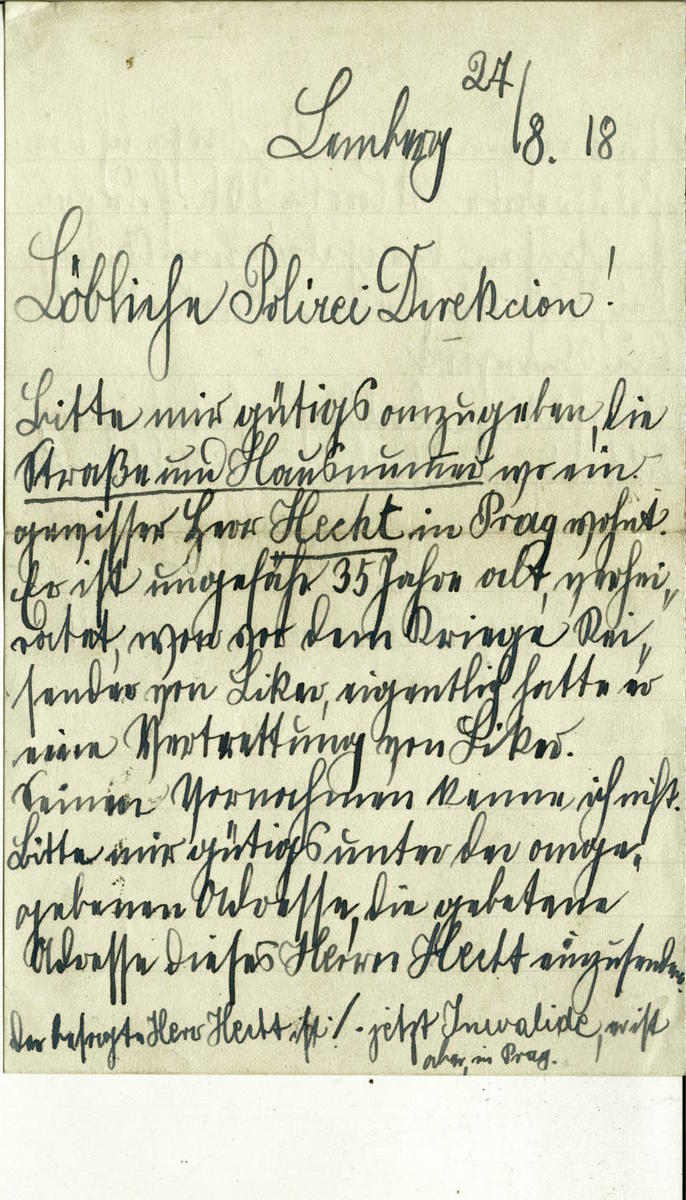 Lemberg 27/8. 18
Löbliche Polizei Direkcion!
Bitte mir gütigs anzugeben, die
Straße und Hausnummer wo ein
gewisser Herr Hecht in Prag wohnt.
Er ist ungefähr 35 Jahre alt, verhei„
ratet, war vor dem Kriege Rei„
sender von Liker, eigentlich hatte er
eine Vertrettung von Liker.
Seinen Vornahmen kenne ich nicht.
Bitte mir gütigs unter der ange„
gebenen Adresse, die gebetene
Adresse dieses Herrn Hecht einzusenden.
Der besagte Herr Hecht ist /. jetzt Inwalide, er ist
aber, in Prag.